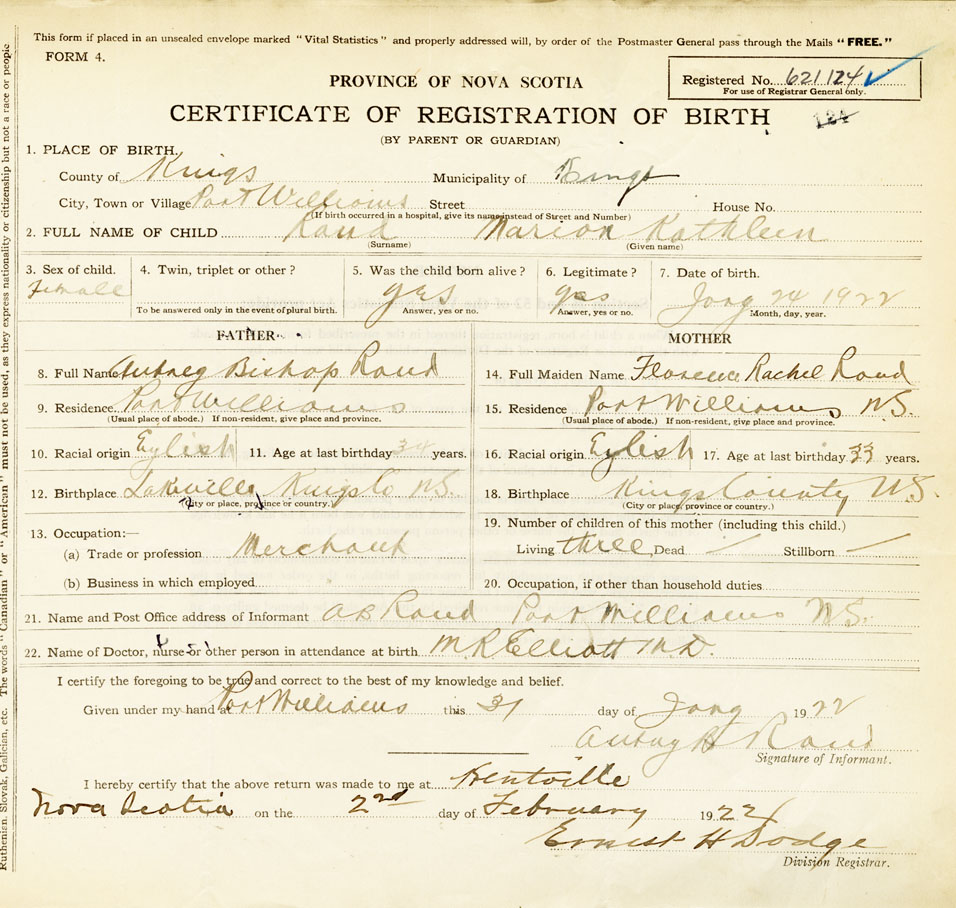 This form if placed in an unsealed envelope marked "Vital Statistics" and properly addressed will, by order of the Postmaster General pass through the Mails "FREE."
FORM 4.
PROVINCE OF NOVA SCOTIA
Registered No. 621124
For use of Registrar General only.
CERTIFICATE OF REGISTRATION OF BIRTH
124
(BY PARENT OR GUARDIAN)
1. PLACE OF BIRTH.
County of Kings Municipality of Kings
City, Town or Village Port Williams Street House No.
(If birth occurred in a hospital, give its name instead of Street and Number)
2. FULL NAME OF CHILD Rand Marion Kathleen
(Surname) (Given name)
3. Sex of child. 4. Twin, triplet or other? 5. Was the child born alive? 6. Legitimate? 7. Date of birth.
Female yes yes Jany 24 1922
To be answered only in the event of plural birth. Answer, yes or no. Answer, yes or no. Month, day, year.
FATHER MOTHER
8. Full Name Aubrey Bishop Rand 14. Full Maiden Name Florence Rachel Rand
9. Residence Port Williams 15. Residence Port Williams N.S.
(Usual place of abode.) If non-resident, give place and province. (Usual place of abode.) If non-resident, give place and province.
10. Racial origin English 11. Age at last birthday 34 years. 16. Racial origin English 17. Age at last birthday 33 years.
12. Birthplace Lakeville Kings Co N.S. 18. Birthplace Kings County N.S.
(City or place, province or country.) (City or place, province or country.)
13. Occupation:— 19. Number of children of this mother (including this child.)
(a) Trade or profession Merchant Living three, Dead / Stillborn /
(b) Business in which employed 20. Occupation, if other than household duties
21. Name and Post Office address of Informant A B Rand Port Williams N.S.
22. Name of Doctor, nurse or other person in attendance at birth M.R. Elliott M.D.
I certify the foregoing to be true and correct to the best of my knowledge and belief.
Given under my hand at Port Williams this 31 day of Jany 1922
Aubrey B Rand
Signature of Informant.
I hereby certify that the above return was made to me at Kentville
Nova Scotia on the 2nd day of February 1922
Ernest H Dodge
Division Registrar.
Ruthenian, Slovak, Galician, etc. The words "Canadian" or "American" must not be used, as they express nationality or citizenship but not a race or people